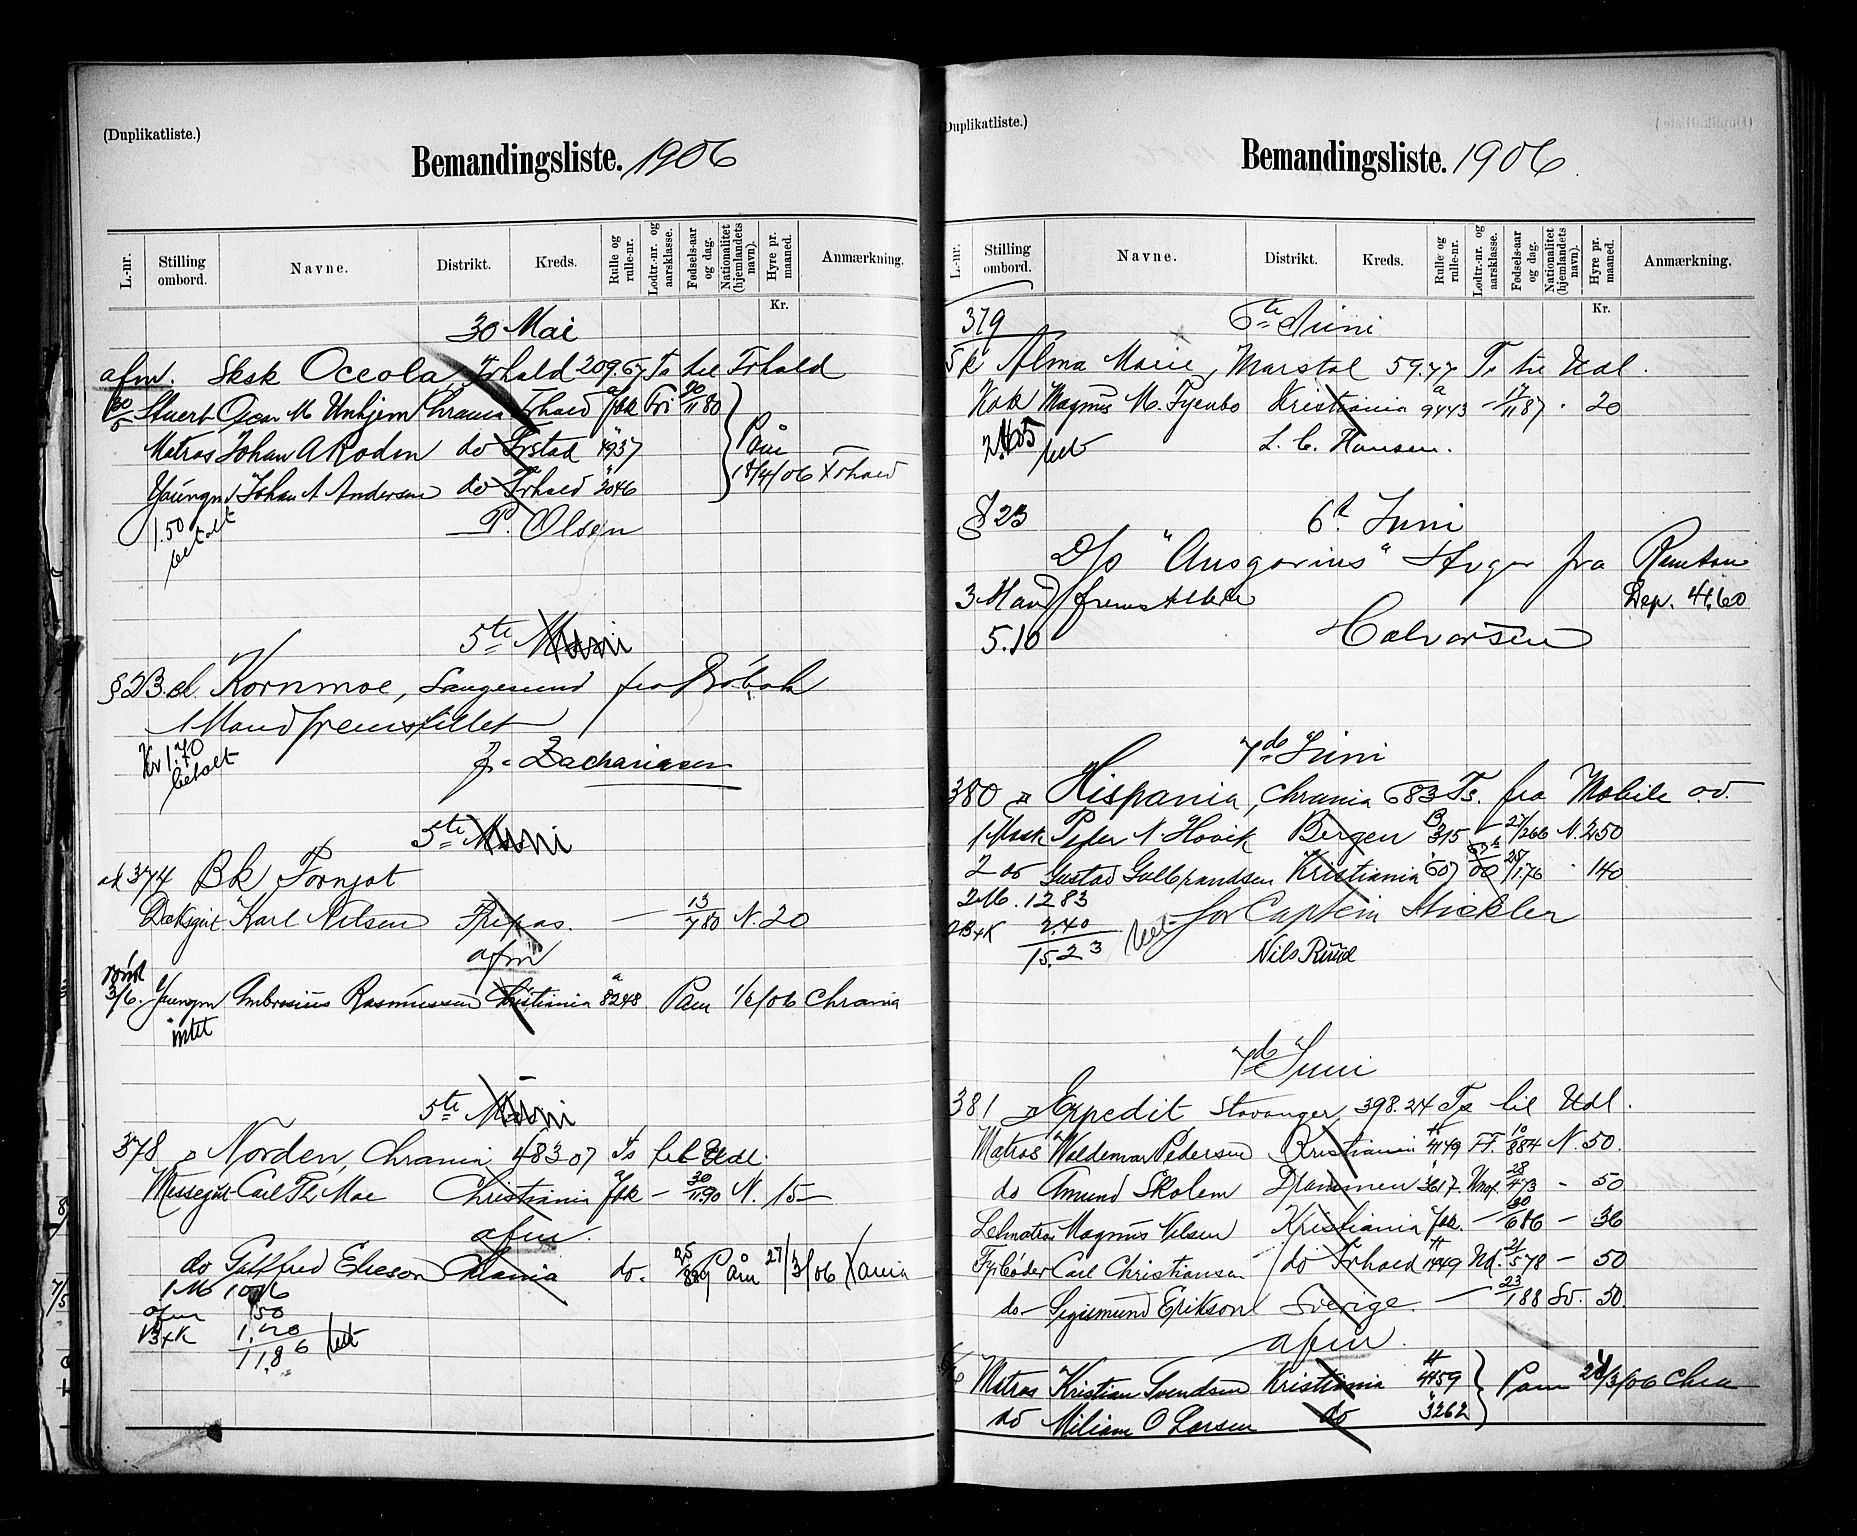 (Duplikatliste.)
Bemandingsliste. 1906
L.-nr. Stilling ombord. Navne. Distrikt. Kreds. Rulle og rulle-nr. Lodtr.-nr. og aarsklasse. Fødsels-aar og dag. Nationalitet (hjemlandets navn). Hyre pr. maaned. Anmærkning.
Kr.
30 Mai
afm. Sksk Occola, Frhald 209.67 Ts til Frhald
Stuert Oscar M Unhjem Chrania Frhald Jbk Fri 11 80
Matros Johan A Roden do Frstad 1937 Påm
Youngm Johan A Andersen do Frhald 2046 18/4/06 Frhald
1.50 P. Olsen
betalt
5te Juni
§23. d. Kornmoe, Langesund fra
1 Mand fremstillet
Kr 1.70 Zachariasen
betalt
5te Juni
374 Bk Fornjot
Dæksgut Karl Nilsen Fripas. — 13/7 80 N. 20
afm
3/6. Youngm Ambrosius Rasmussen Kristiania a 8248 Pam 1/6/06 Chrania
intet
5te Juni
378 " Norden, Chrania 483.07 Ts til Udl.
Messegut Carl Th. Moe Christiania Jbk — 30/11 90 N. 15 —
afm.
do Gotfred Elieson Chrania do. Påm 27/3/06 Xania
1 M 10.16
afm 50
1B+K 1.20
11.86 bet
(Duplikatliste.)
Bemandingsliste. 1906
L.-nr. Stilling ombord. Navne. Distrikt. Kreds. Rulle og rulle-nr. Lodtr.-nr. og aarsklasse. Fødsels-aar og dag. Nationalitet (hjemlandets navn). Hyre pr. maaned. Anmærkning.
Kr.
379 6te Juni
Sk Alma Marie, Marstal 59.77 Ts til Udl.
Kok Magnus M. Fyenbo Kristiania a 9443 — 17/11 87 . 20
bet L. C. Hansen.
§ 23 6t Juni
D/s "Ansgarius" Stvgr fra
3 Mand fremstillede Dep. 41,60
5.10 Halvorsen
7de Juni
380 " Hispania, Chrania 683 Ts. fra Mobile o.v.
1 Mask Peter N. Hovik Bergen B 315 — 27/2 66 N. 250
2 do Gustav Gulbrandsen Kristiania 607 00 28/1 76 . 140
2 M. 12.83 for Captein Stickler
2B+K 2.40
15.23 bet Nils Ruud
7de Juni
381 " Expedit Stavanger, 398.24 Ts til Udl.
Matros Waldemar Pedersen Kristiania 4149 FF. 10/8 84 N. 50.
do Amund Skolem Drammen 3617. 28/4 73 — 50
Letmatros Magnus Nilsen Kristiania Jbk. — 30/6 86 — 36
Fyrbøder Carl Christiansen do Frhald 1449 Ud. 21/5 78 — 50
do — Segismund Erikson Sverige. — 23/1 88 Sv. 50.
afm.
Matros Kristian Svendsen Kristiania 4459 Pam 24/3/06 Chra
do Miliam O Larsen do 3262